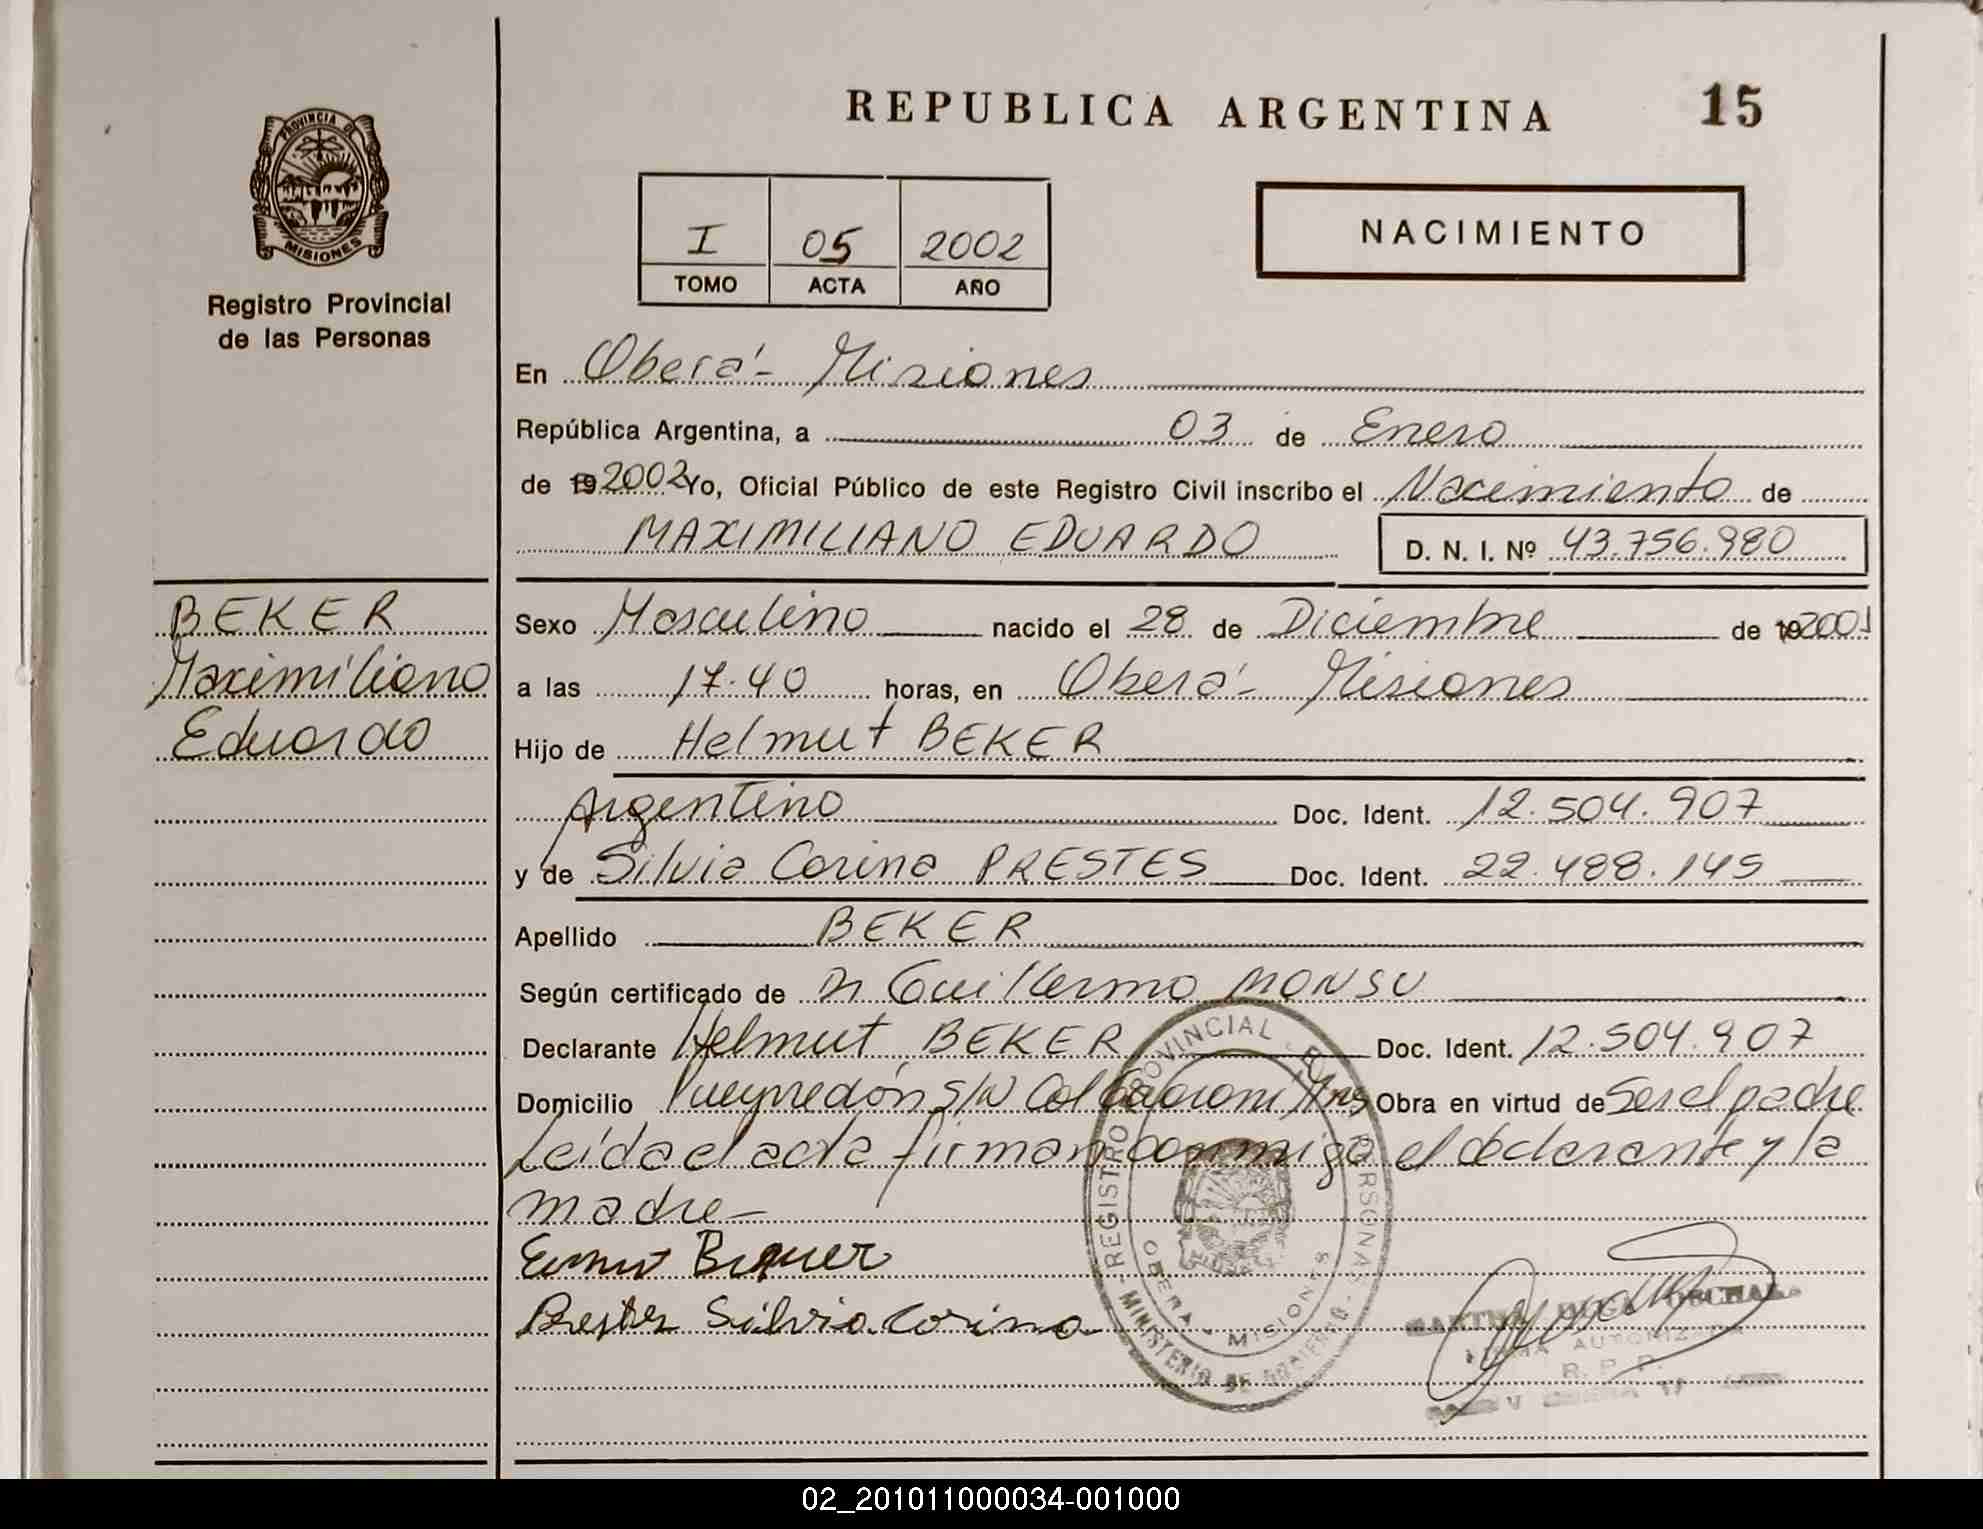 REPUBLICA ARGENTINA 15
PROVINCIA DE
MISIONES
Registro Provincial
de las Personas
I 05 2002
TOMO ACTA AÑO
NACIMIENTO
En Oberá - Misiones
República Argentina, a 03 de Enero
de 19 2002 Yo, Oficial Público de este Registro Civil inscribo el Nacimiento de
MAXIMILIANO EDUARDO D. N. I. Nº 43.756.980
BEKER
Maximiliano
Eduardo
Sexo Masculino nacido el 28 de Diciembre de 19 2001
a las 17.40 horas, en Oberá - Misiones
Hijo de Helmut BEKER
Argentino Doc. Ident. 12.504.907
y de Silvia Corina PRESTES Doc. Ident. 22.488.145
Apellido BEKER
Según certificado de Dr Guillermo MONSU
Declarante Helmut BEKER Doc. Ident. 12.504.907
Domicilio Pueyrredón S/N Col Mns Obra en virtud de Ser el padre
Leída el acta firman conmigo el declarante y la
madre -
Silvia Corina
REGISTRO PROVINCIAL DE LAS PERSONAS
MINISTERIO DE GOBIERNO
OBERA - MISIONES
R. P. P.
02_201011000034-001000